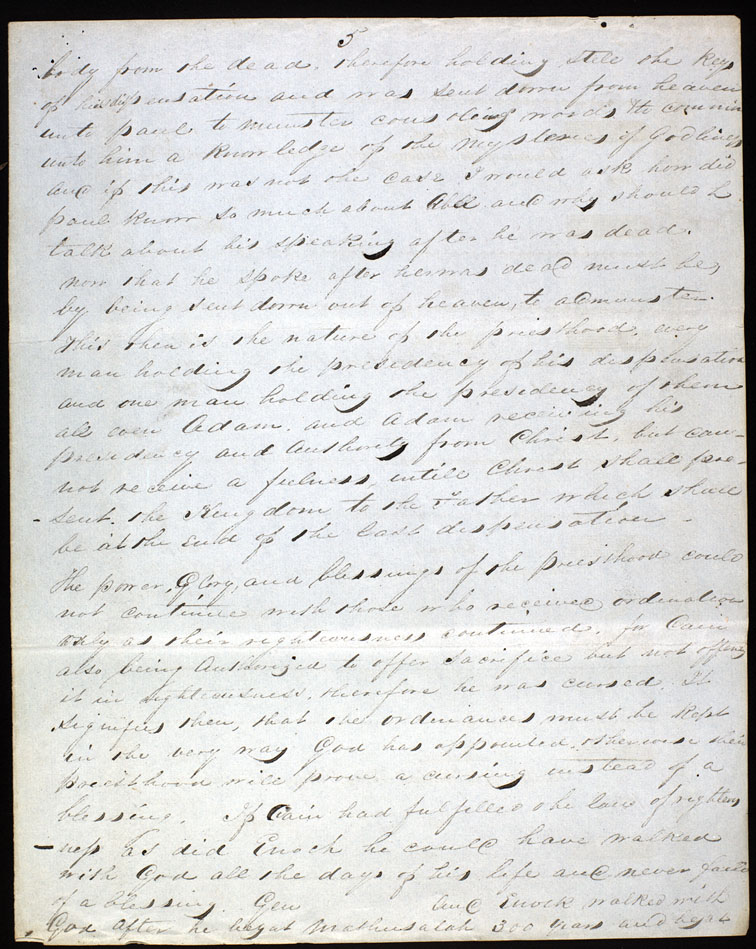 5
body from the dead, therefore holding still the keys
of his dispensation and was sent down from heaven
unto paul to minister consoling words & to commit
unto him a knowledge of the mysteries of Godliness
and if this was not the case I would ask how did
paul know so much about Abel and why should he
talk about his speaking after he was dead.
now that he spoke after he was dead must be,
by being sent down out of heaven, to administer.
This then is the nature of the priesthood, every
man holding the presidency of his dispensation
and one man holding the presidency of them
all even Adam. and Adam receiving his
presidency and Authority from Christ, but can-
not receive a fulness, untill Christ shall pre-
sent the Kingdom to the Father which shall
be at the end of the last dispensation -
The power, Glory, and blessings of the priesthood could
not continue with those who received ordination
only as their righteousness continued, for Cain
also being Authorized to offer sacrifice but not offering
it in righteousness, therefore he was cursed. It
signifies then, that the ordinances must be kept
in the very way God has appointed, otherwise their
priesthood will prove a cursing instead of a
blessing. If Cain had fulfilled the law of righteous
ness as did Enoch he could have walked
with God all the days of his life and never failed
of a blessing. Gen and Enoch walked with
God after he begat Mathusalah 300 years and begat